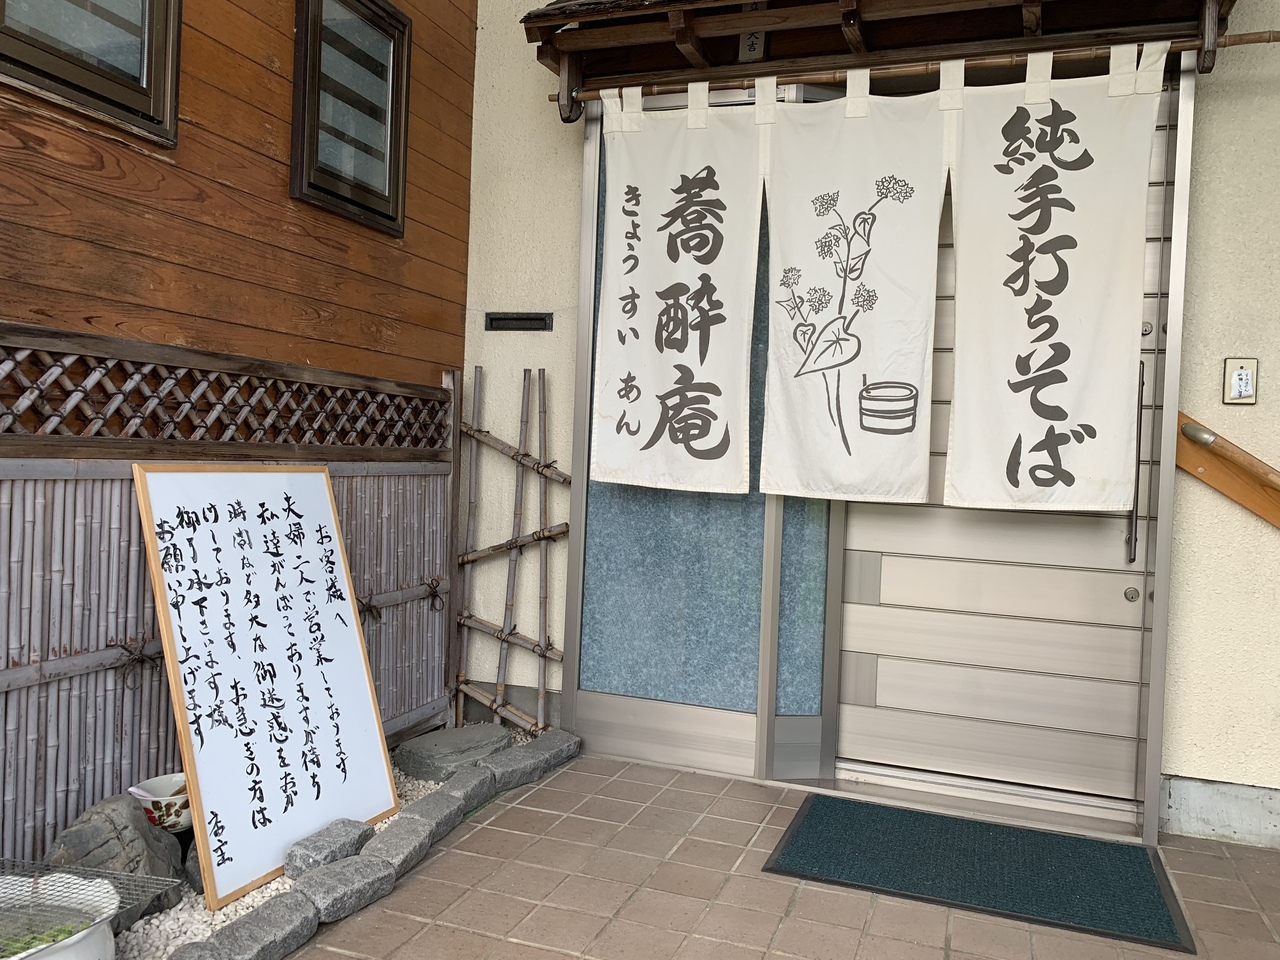 純手打ちそば
蕎酔庵
きょうすいあん
大吉
お客様へ
夫婦二人で営業しております
私達がんばっておりますが待ち
時間など多大な御迷惑をおか
けしております、お急ぎの方は
御了承下さいます様
お願い申し上げます
店主